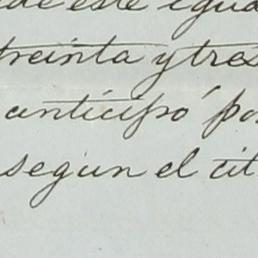 de este igua
treinta y tres
anticipó por
segun el cit